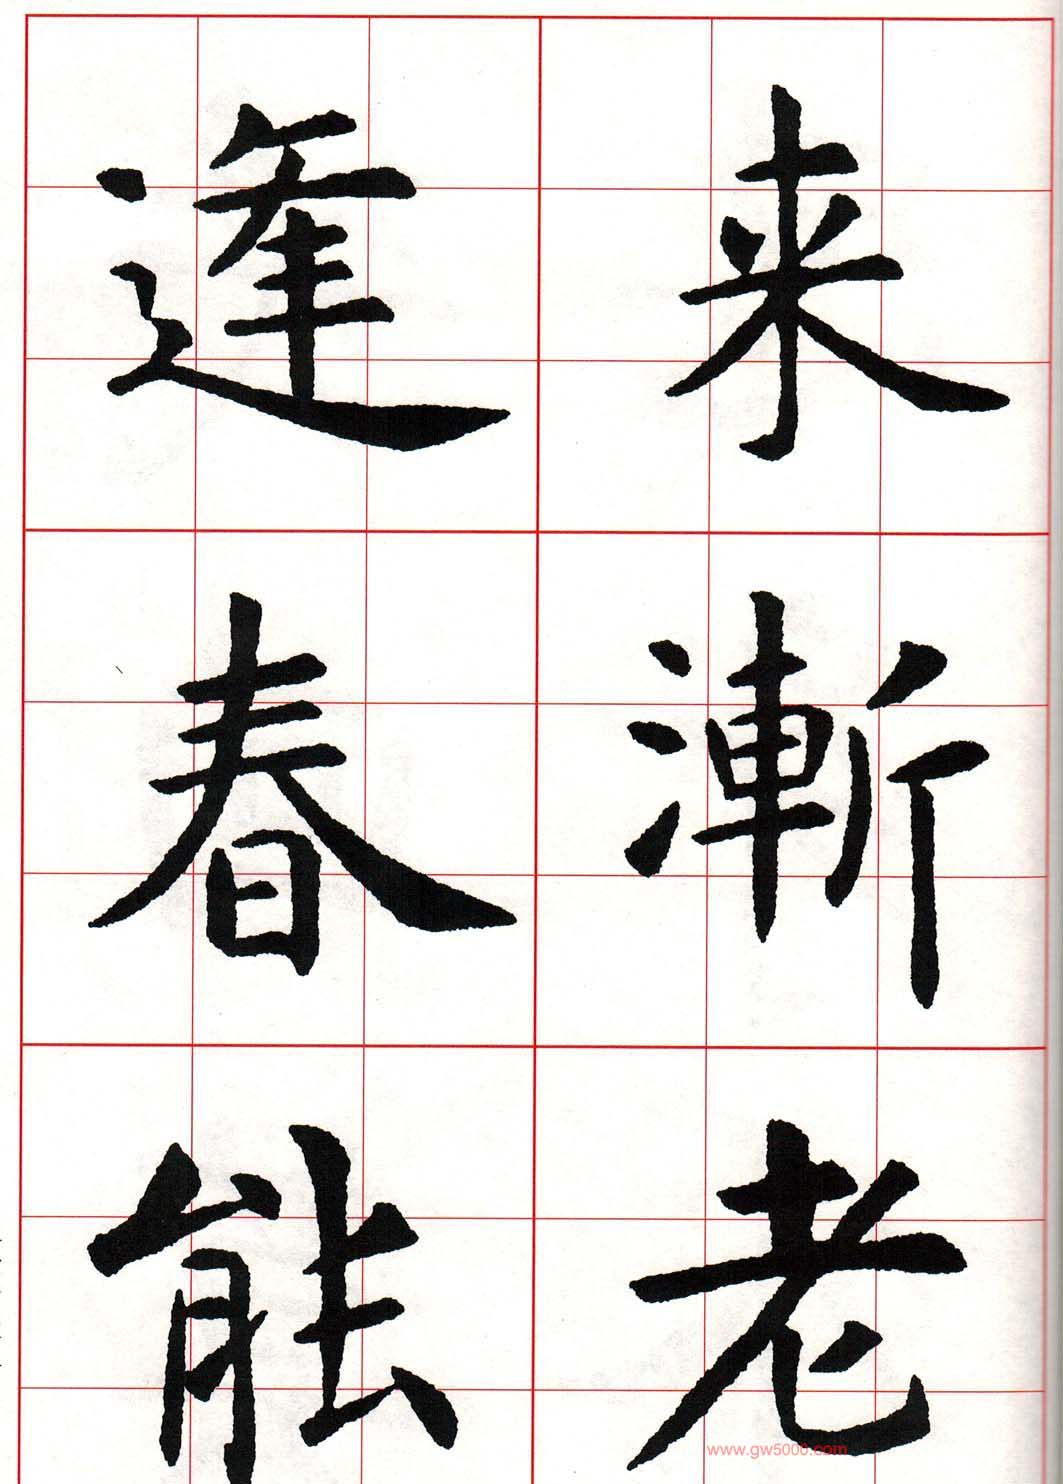 来漸老
逢春能
www.gw5000.com